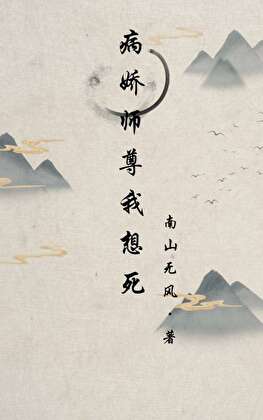 病娇师尊我想死
南山无风·著